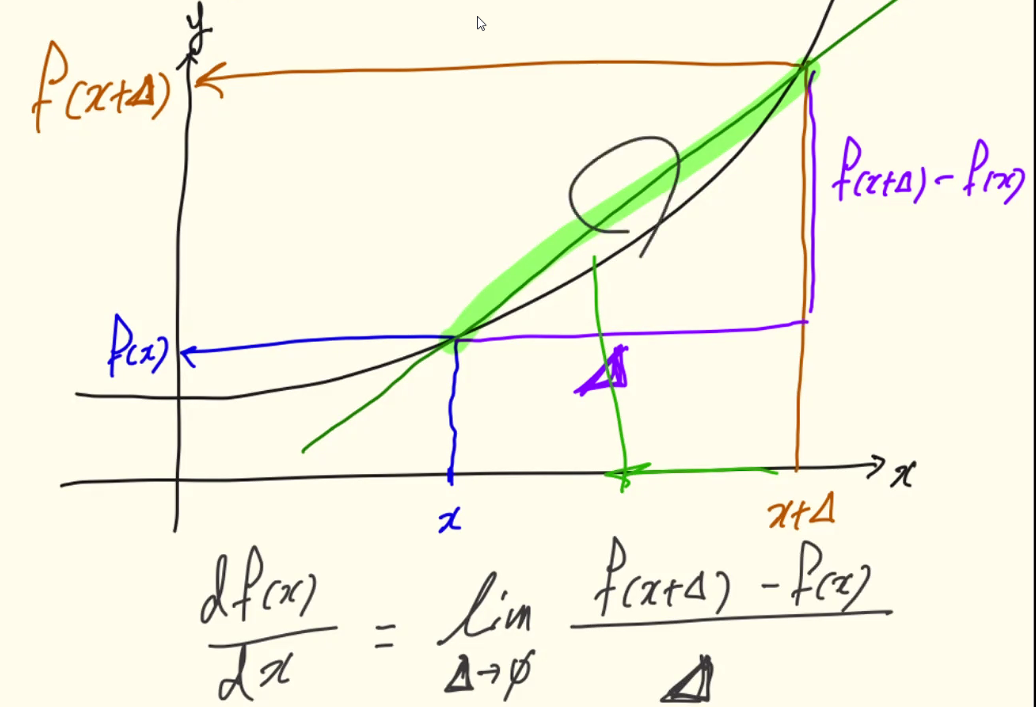 y
f(x+Δ)
f(x+Δ) - f(x)
f(x)
Δ
x
x
x+Δ
df(x)/dx = lim Δ→φ f(x+Δ) - f(x) / Δ